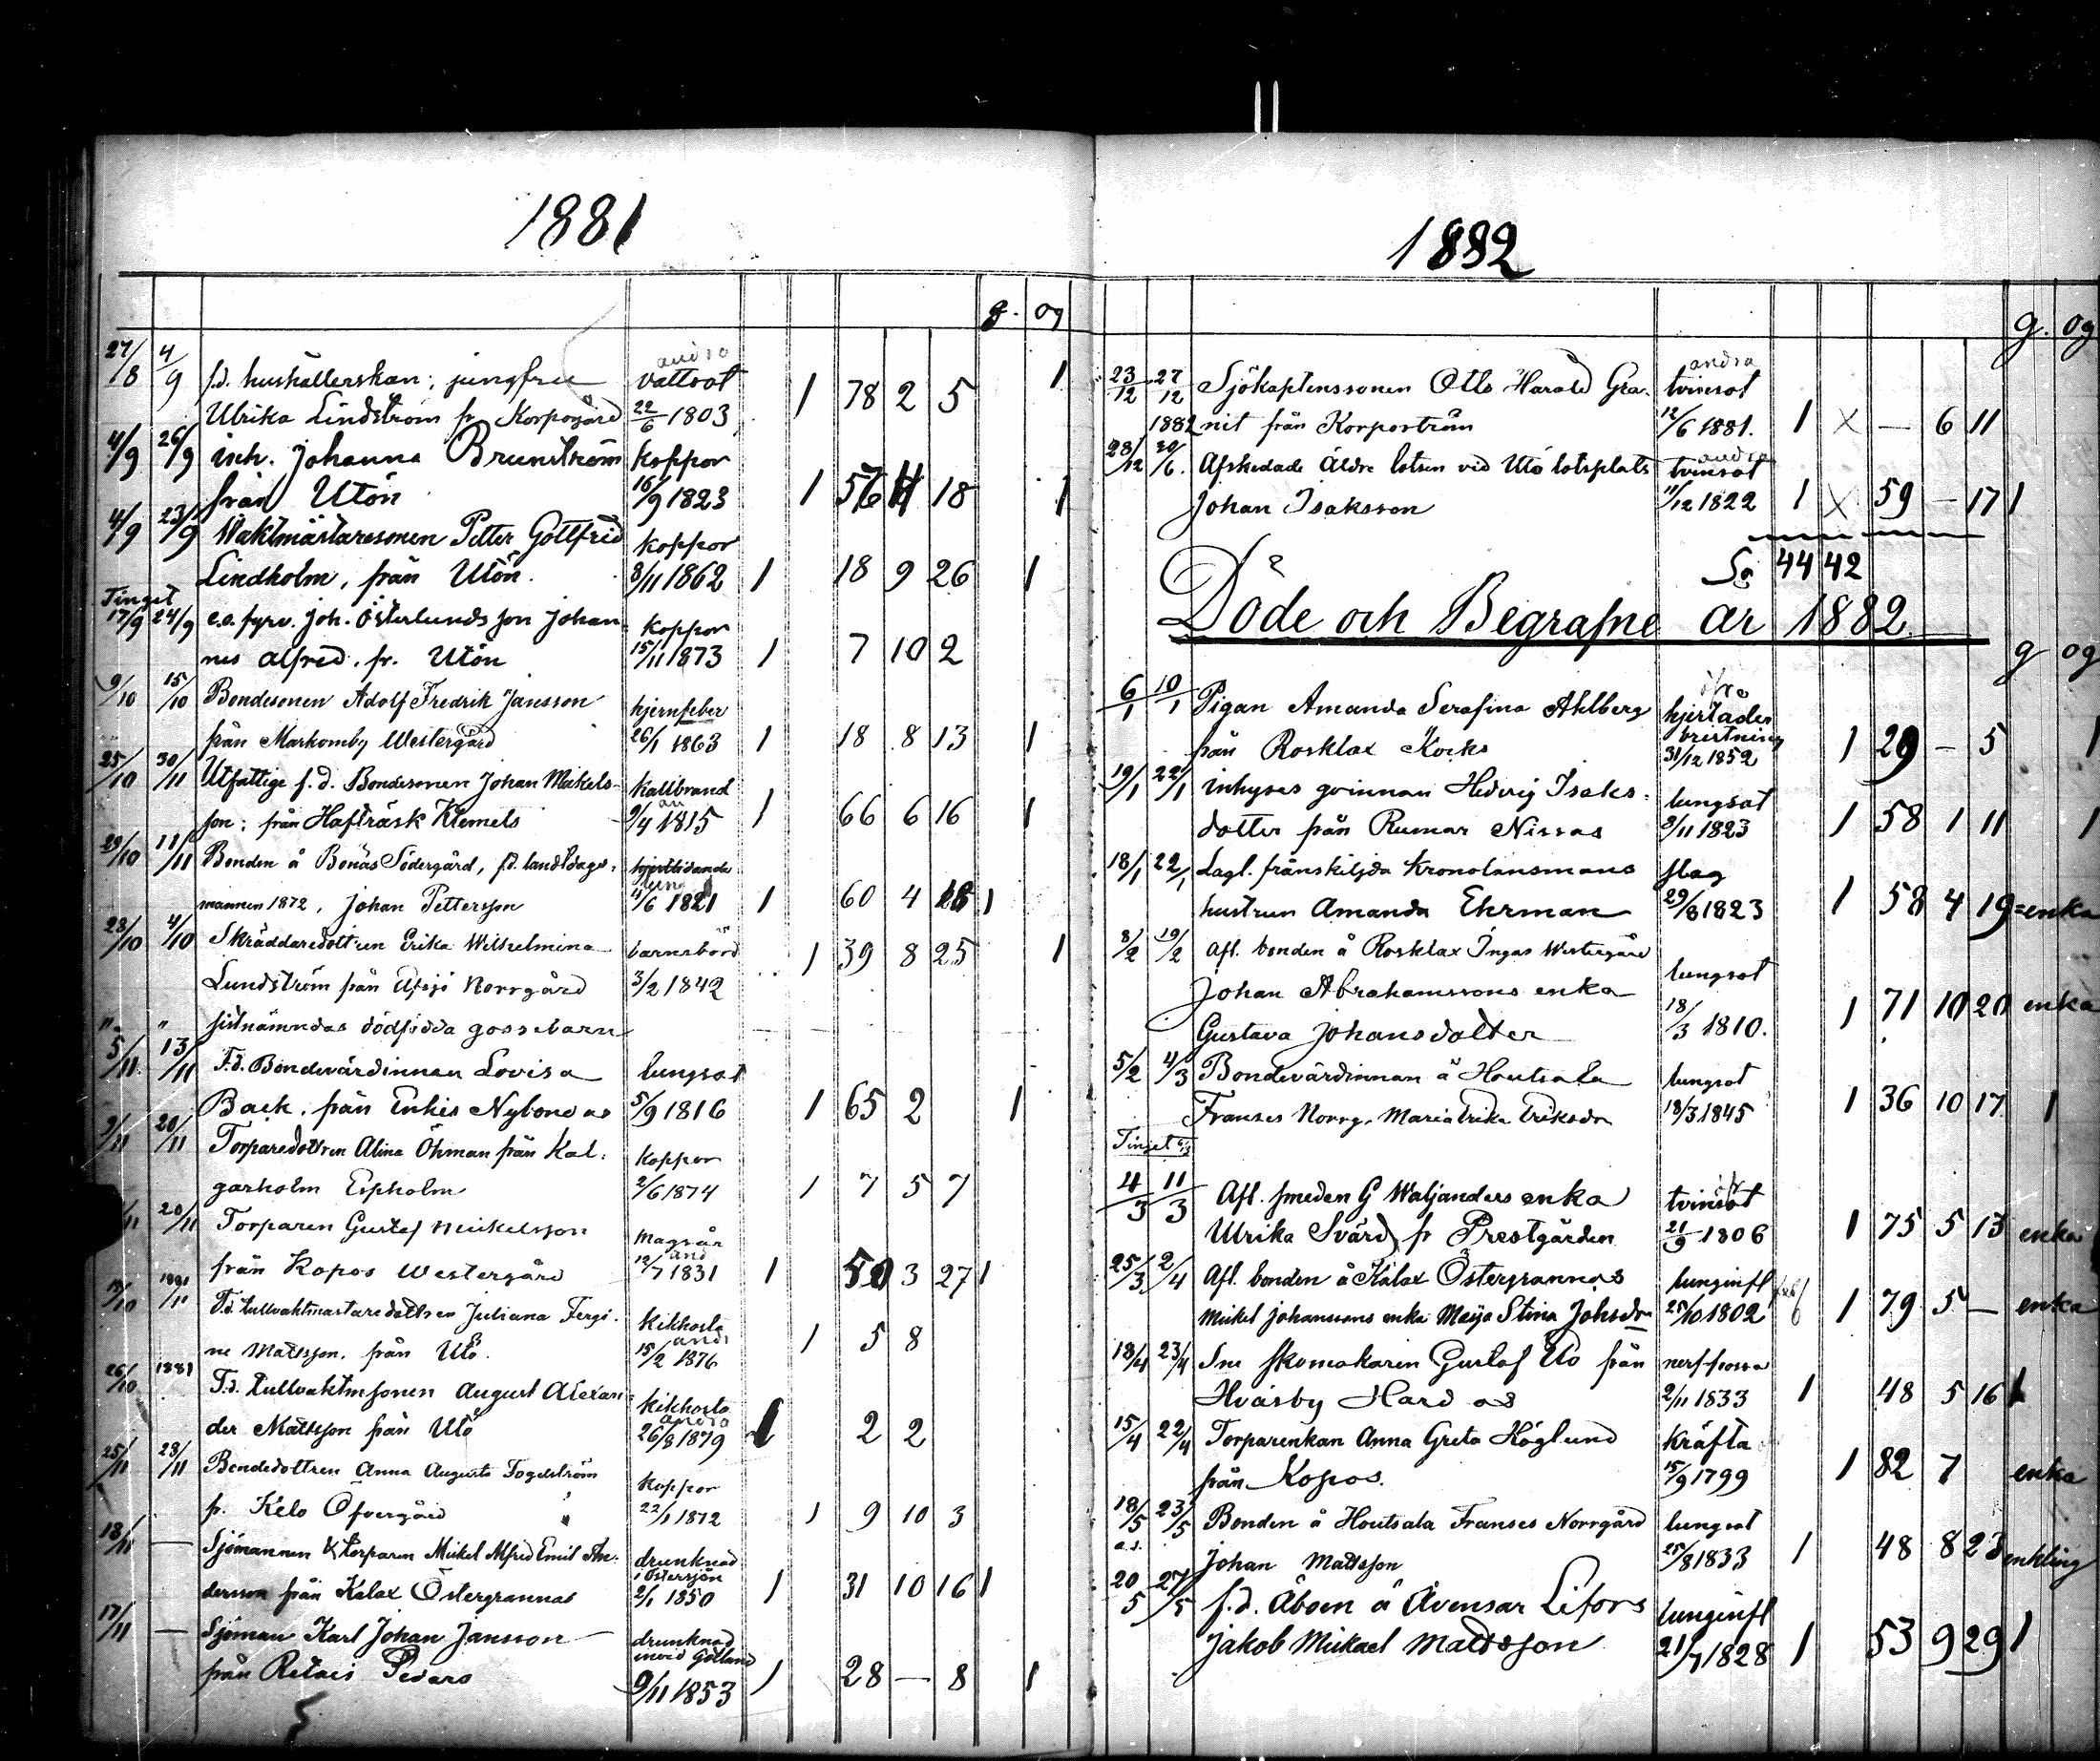 1881
g. og
27/8 4/9 f.d. hushållerskan; jungfru vattsot andra 1 78 2 5 1
Ulrika Lindström fr Korpogård 22/6 1803
4/9 26/9 inh. Johanna Brunström koppor
från Utön 16/9 1823 1 57 11 18 1
4/9 23/9 Waktmästaresonen Petter Gottfrid koppor
Lindholm, från Utön. 8/11 1862 1 18 9 26 1
Tinget
17/9 24/9 e.o. fyrv. Joh. Österlunds son Johan- koppor
nes Alfred. fr. Utön 15/11 1873 1 7 10 2
9/10 15/10 Bondesonen Adolf Fredrik Jansson hjernfeber
från Markomby Westergård 26/1 1863 1 18 8 13 1
25/10 30/11 Utfattige f.d. Bondesonen Johan Mickels- kallbrand
son; från Hafträsk Klemels 9/4 1815 1 66 6 16 1
29/10 11/11 Bonden å Bonäs Södergård, f.d. landtdags- hjertlidande
mannen 1872, Johan Pettersson 11/6 1821 1 60 4 18 1
28/10 4/10 Skräddaredottren Erika Wilhelmina barnsbörd 1 39 8 25 1
Lundström från Norrgård 3/2 1842
" " sistnämndas dödfödda gossebarn
5/11 13/11 F.d. Bondevärdinnan Lovisa lungsot
Back. från Enkis Nybondas 5/9 1816 1 65 2 1
9/11 20/11 Torparedottren Alina Öhman från Kal- koppor
garholm Espholm 2/6 1874 1 7 5 7
/11 20/11 Torparen Gustaf Mickelsson magsår
från Kopos Westergård 12/7 1831 1 50 3 27 1
/10 1881/11 F.d. tullvaktmästaredottren Juliana Fergi- kikhosta
ne Mattsson. från Utö. 15/2 1876 1 5 8
26/10 1881 F.d. tullvaktmsonen August Alexan- kikhosta
der Mattsson från Utö andra 26/8 1879 1 2 2
25/11 28/11 Bondedottren Anna Augusta Fogelström koppor
fr. Kelo Öfvergård 22/1 1872 1 9 10 3
18/11 — Sjömannen & torparen Mickel Alfred Emil An- drunknad i Östersjön
dersson från Kalax Östergrannas 2/1 1850 1 31 10 16 1
17/11 — Sjöman Karl Johan Jansson drunknad invid Gotland
från Retais Peders 9/11 1853 1 28 — 8 1
1882
g. og
23/12 27/12 Sjökaptenssonen Otto Harald Gra- andra tvinsot
1882 nit från Korpoström 12/6 1881. 1 X — 6 11
28/12 30/6. Afskedade äldre lotsen vid Utö lotsplats andra tvinsot
Johan Isaksson 11/12 1822 1 X 59 — 17 1
Sa 44 42
Döde och Begrafne år 1882.
g og
6/1 10/1 Pigan Amanda Serafina Ahlberg hjertåder
från Rosklax Kocks bristning 31/12 1852 1 29 — 5 1
19/1 22/1 inhyses qvinnan Hedvig Isaks- lungsot
dotter från Rumar Nissas 8/11 1823 1 58 1 11 1
18/1 22/1 Lagl. frånskiljda Kronolänsmans slag
hustrun Amanda Ehrman 29/8 1823 1 58 4 19 = enka
8/2 19/2 Afl. bonden å Rosklax Ingas Westergård lungsot
Johan Abrahamssons enka 18/3 1810. 1 71 10 20 enka
Gustava Johansdotter
5/2 4/3 Bondevärdinnan å Houtsala lungsot
Franses Norrg. Maria Erika Eriksdr 18/3 1845 1 36 10 17 1
Tinget
4/3 11/3 Afl. smeden G Waljanders enka tvinsot
Ulrika Svärd fr Prestgården 21/9 1806 1 75 5 13 enka
25/3 2/4 Afl. bonden å Kalax Östergrannas lunginfl
Mickel Johanssons enka Maija Stina Johsdr 25/10 1802 1 79 5 — enka
18/4 23/4 Sne skomakaren Gustaf Utö från nerffrossa
Hväsby Hard as 2/11 1833 1 48 5 16 1
15/4 22/4 Torparenkan Anna Greta Höglund kräfta
från Kopos. 15/9 1799 1 82 7 enka
18/5 23/5 Bonden å Houtsala Franses Norrgård lungsot
Johan Mattsson 25/8 1833 1 48 8 23 enkling
20/5 27/5 f.d. Åboen å Åvensar Lifors lunginfl
Jakob Mickael Mattsson 21/7 1828 1 53 9 29 1